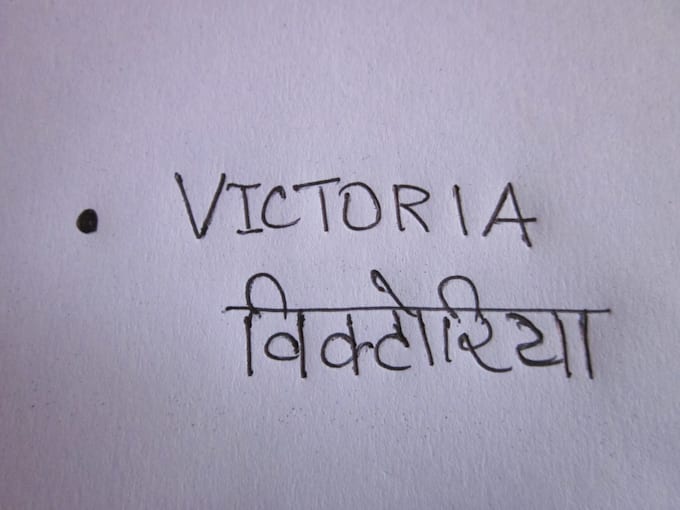 • VICTORIA
विक्टोरिया